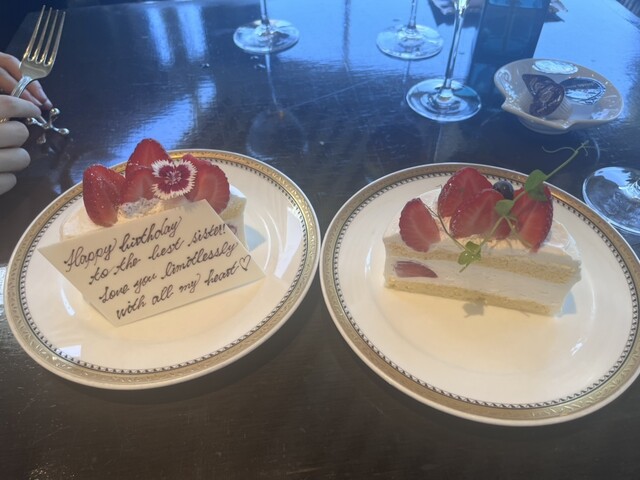 Happy birthday
to the best sister!!
Love you limitlessly
with all my heart♡